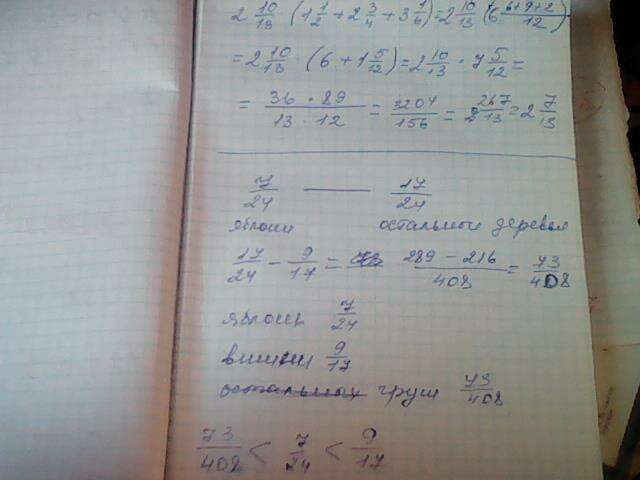 2 10/13 · (1 1/2 + 2 3/4 + 3 1/6) = 2 10/13 · (6 6+9+2/12)
= 2 10/13 · (6 + 1 5/12) = 2 10/13 · 7 5/12 =
= 36 · 89/13 · 12 = 3204/156 = 267/13 = 2 7/13
7/24 — 17/24
яблони остальное деревья
17/24 - 9/17 = 289 - 216/408 = 73/408
яблонь 7/24
вишни 9/17
остальных груш 73/408
73/408 < 7/24 < 9/17